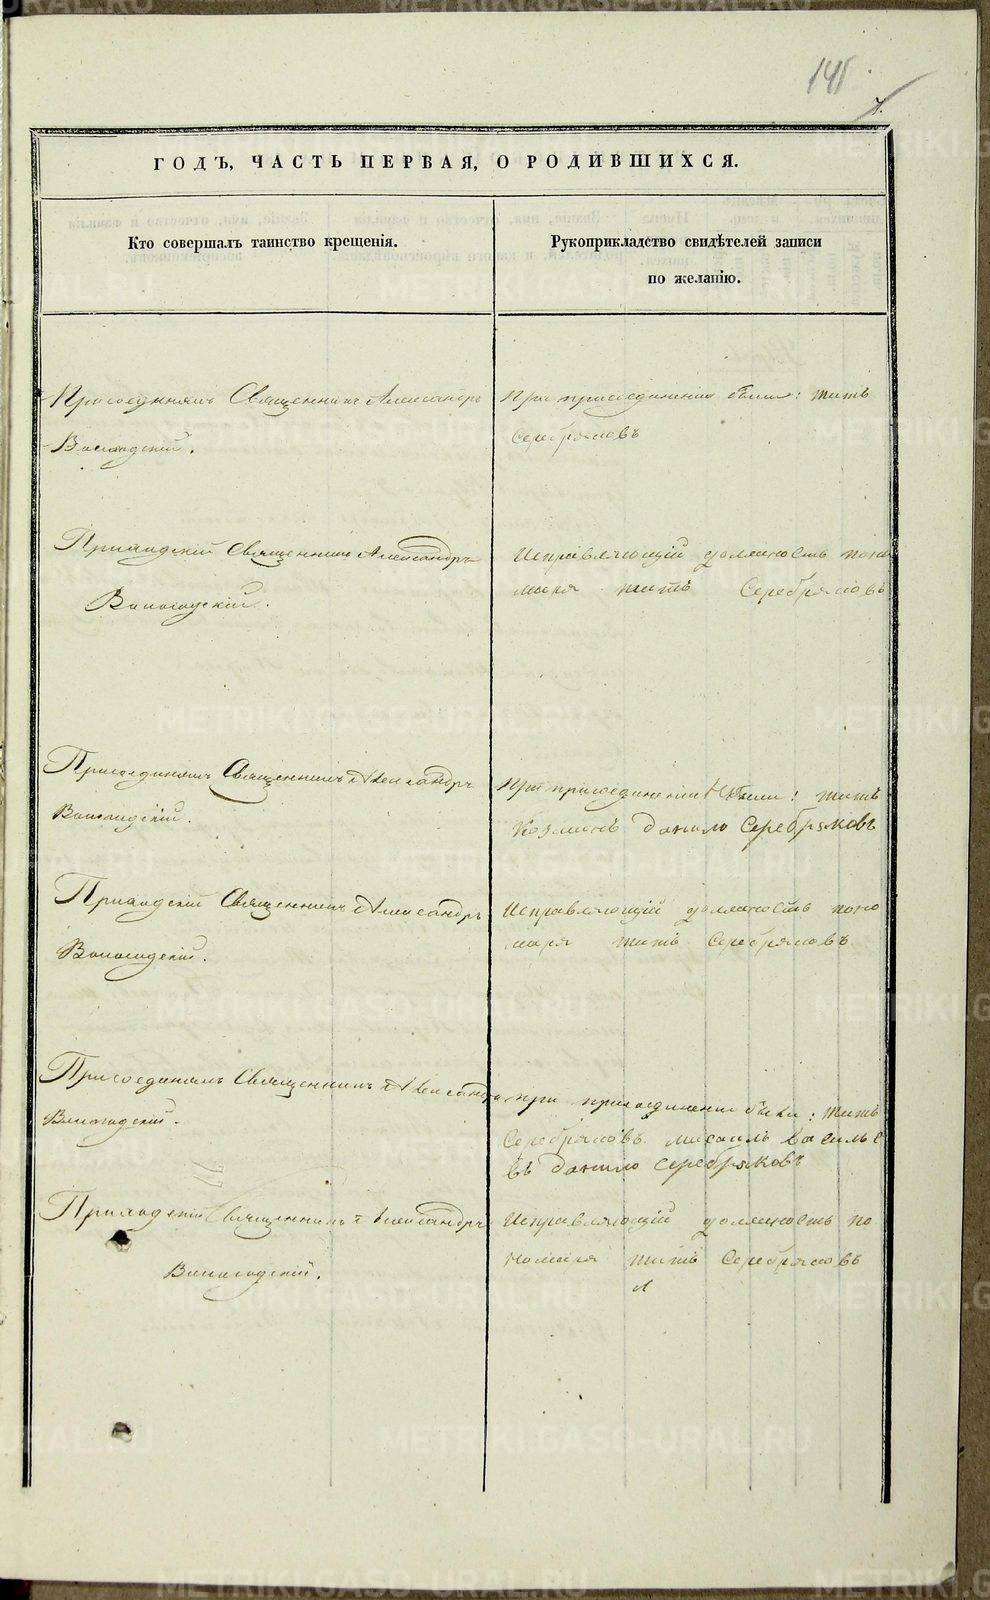 141
7.
ГОДЪ, ЧАСТЬ ПЕРВАЯ, О РОДИВШИХСЯ.
Кто совершалъ таинство крещенія.
Рукоприкладство свидѣтелей записи
по желанію.
Присоединялъ Священникъ Александръ
Вологодскій.
При присоединеніи были: Титъ
Серебряковъ
Приходскій Священникъ Александръ
Вологодскій.
Исправляющій должность поно
маря Титъ Серебряковъ
Присоединялъ Священникъ Александръ
Вологодскій.
При присоединеніи были: Титъ
Козминъ Данило Серебряковъ
Приходскій Священникъ Александръ
Вологодскій.
Исправляющій должность поно
маря Титъ Серебряковъ
Присоединялъ Священникъ Александръ
Вологодскій.
При присоединеніи были: Титъ
Серебряковъ Василье
въ Данило Серебряковъ
Приходскій Священникъ Александръ
Вологодскій.
Исправляющій должность по
номаря Титъ Серебряковъ
METRIKI.GASO-URAL.RU